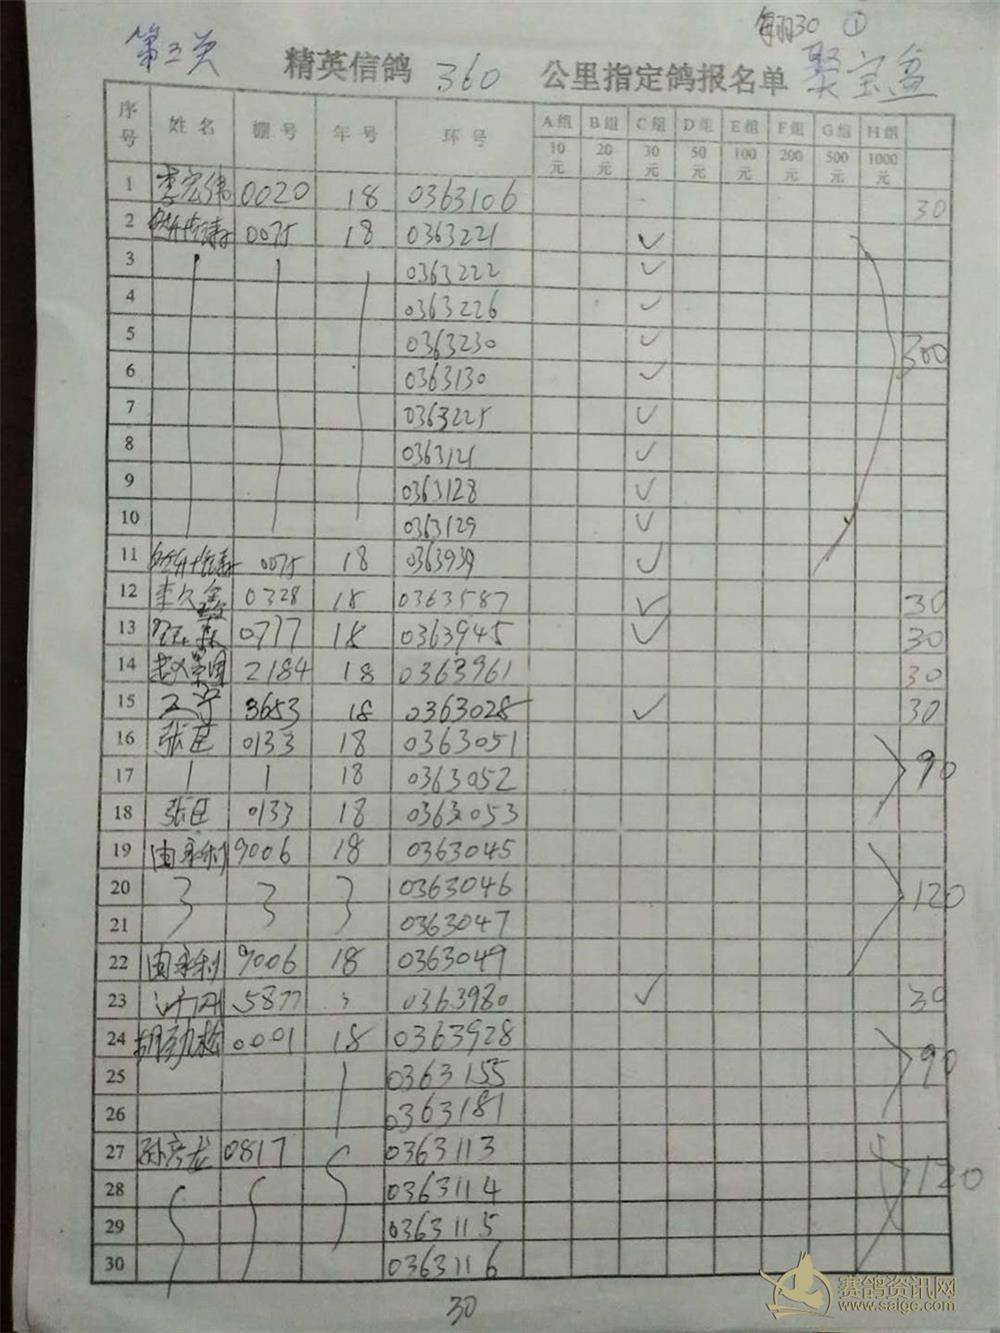 每羽30 ①
第三页 精英信鸽 360 公里指定鸽报名单 聚宝盆
序号 姓名 棚号 年号 环号 A组 B组 C组 D组 E组 F组 G组 H组
10元 20元 30元 50元 100元 200元 500元 1000元
1 李宏伟 0020 18 0363106 30
2 0075 18 0363221 ✓
3 0363222 ✓
4 0363226 ✓
5 0363230 ✓ 300
6 0363130 ✓
7 0363225 ✓
8 0363121 ✓
9 0363128 ✓
10 0363129 ✓
11 0075 18 0363939 ✓
12 李久鑫 0328 18 0363587 ✓ 30
13 0777 18 0363945 ✓ 30
14 2184 18 0363961 30
15 王宁 3653 18 0363028 ✓ 30
16 张臣 0133 18 0363051
17 18 0363052 90
18 张臣 0133 18 0363053
19 由永利 9006 18 0363045
20 0363046 120
21 0363047
22 由永利 9006 18 0363049
23 5877 0363980 ✓ 30
24 胡劲松 0001 18 0363928
25 0363155 90
26 0363181
27 孙彦龙 0817 0363113
28 0363114 120
29 0363115
30 0363116
30
赛鸽资讯网
www.saigc.com